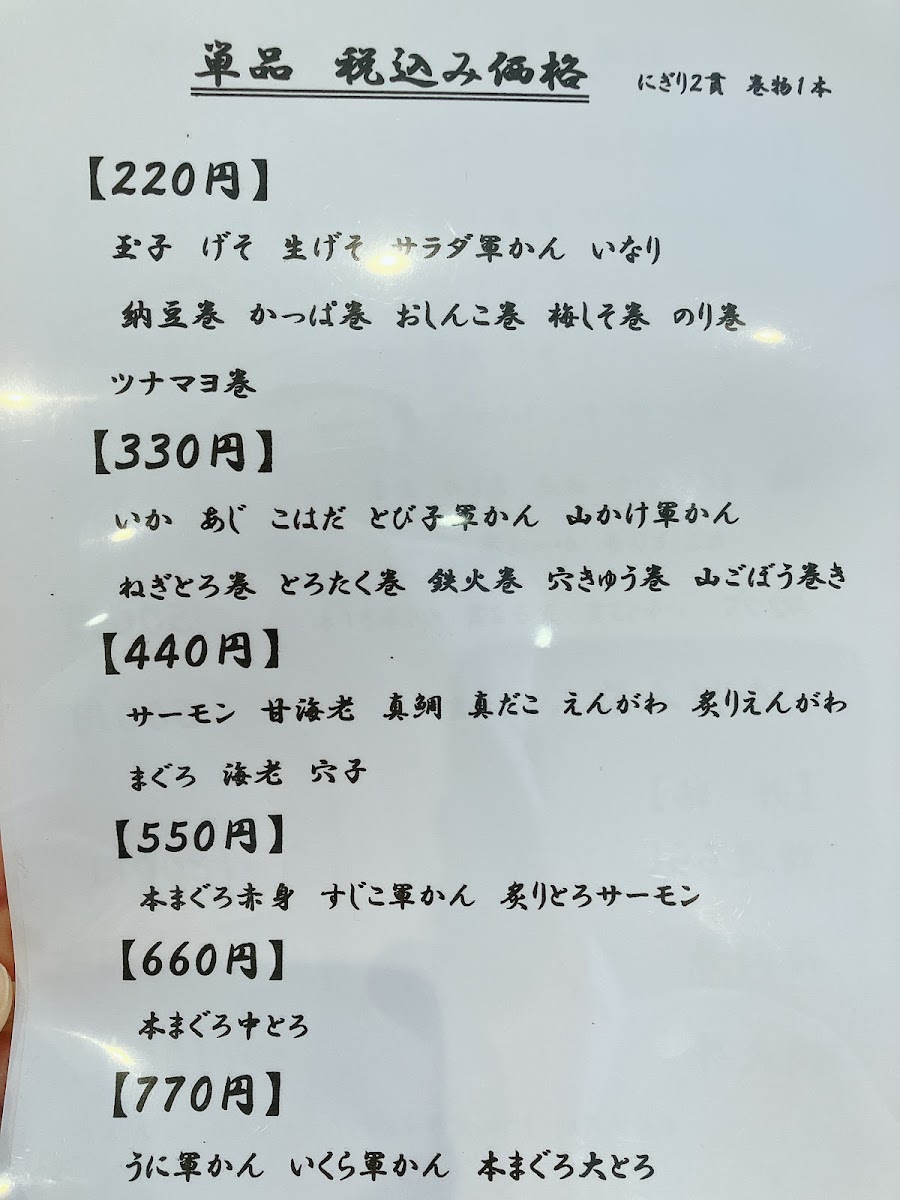 単品　税込み価格　にぎり2貫　巻物1本
【220円】
玉子　げそ　生げそ　サラダ軍かん　いなり
納豆巻　かっぱ巻　おしんこ巻　梅しそ巻　のり巻
ツナマヨ巻
【330円】
いか　あじ　こはだ　とび子軍かん　山かけ軍かん
ねぎとろ巻　とろたく巻　鉄火巻　穴きゅう巻　山ごぼう巻き
【440円】
サーモン　甘海老　真鯛　真だこ　えんがわ　炙りえんがわ
まぐろ　海老　穴子
【550円】
本まぐろ赤身　すじこ軍かん　炙りとろサーモン
【660円】
本まぐろ中とろ
【770円】
うに軍かん　いくら軍かん　本まぐろ大とろ